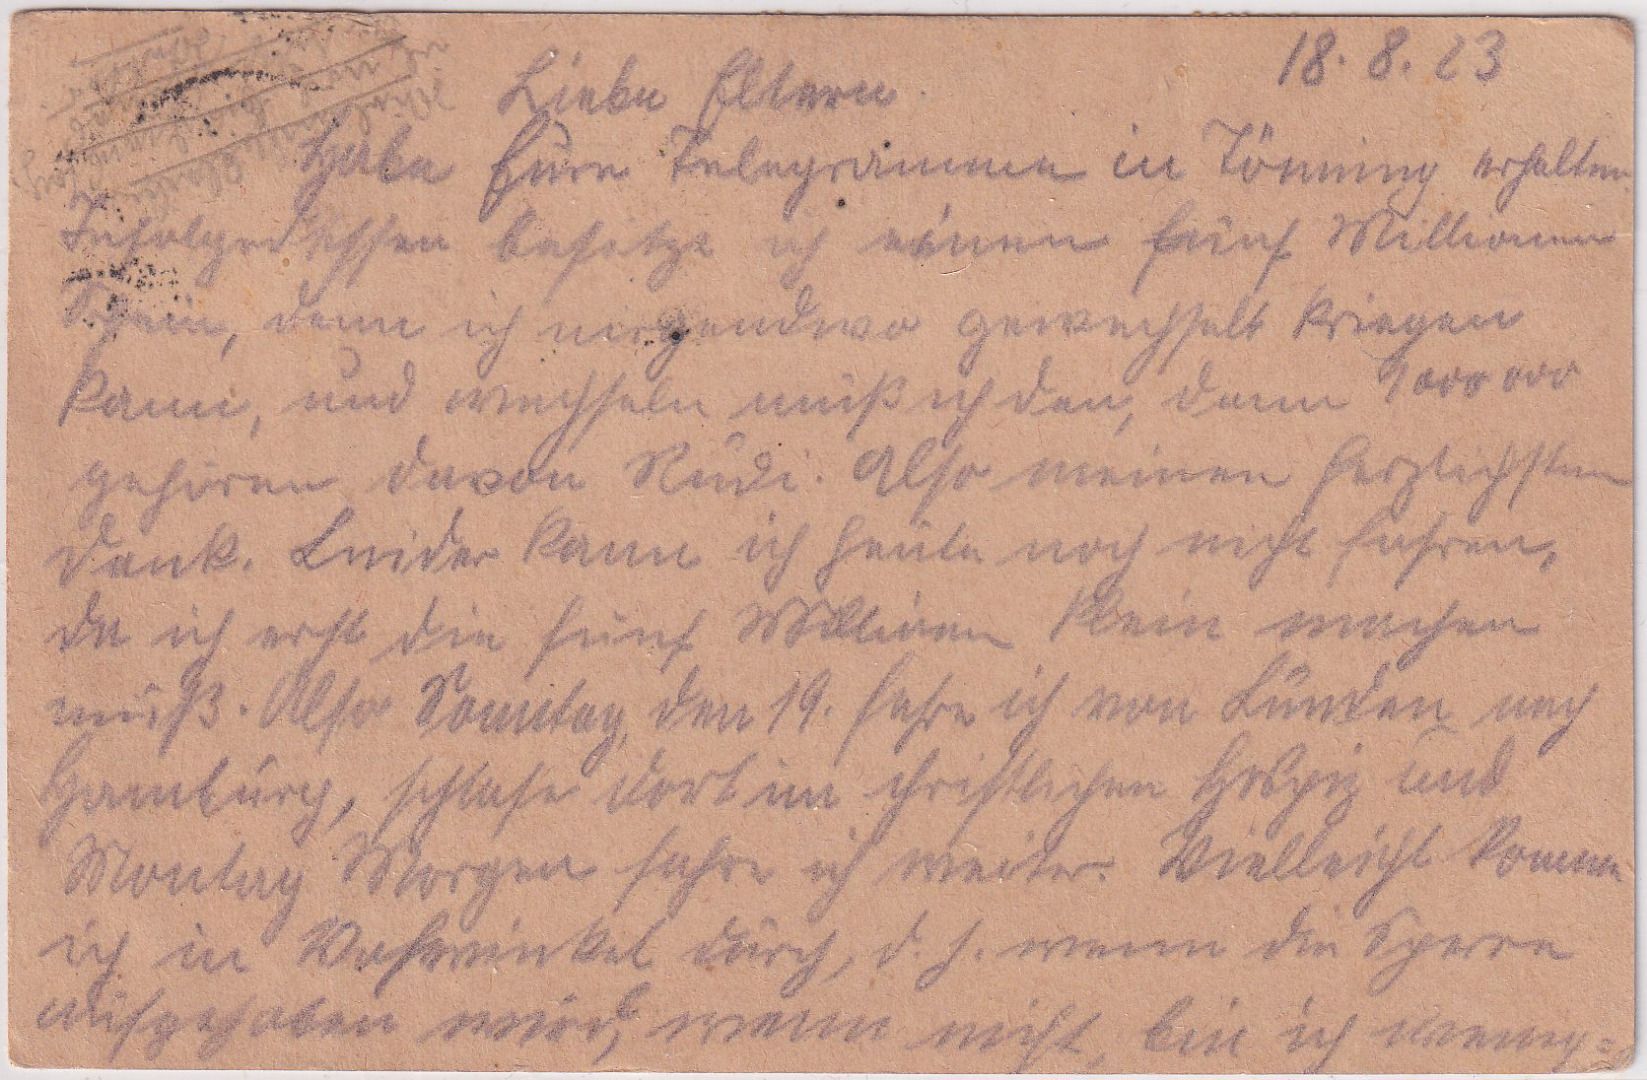 18. 8. 23
Liebe Eltern.
Habe Eure Telegramme in Tönning erhalten
Infolgedessen besitze ich einen fünf Millionen
Schein, denn ich nirgendwo gewechselt kriegen
kann, und wechseln muß ich den, denn 1000 000
gehören davon Rudi. Also meinen herzlichsten
Dank. Leider kann ich heute noch nicht fahren,
da ich erst die fünf Millionen klein machen
muß. Also Sonntag, den 19. fahre ich von Lunden nach
Hamburg, schlafe dort im christlichen Hospiz und
Montag Morgen fahre ich weiter. Vielleicht komme
ich in Vohwinkel durch, d. h. wenn die Sperre
aufgehoben wird, wenn nicht, bin ich wenig-